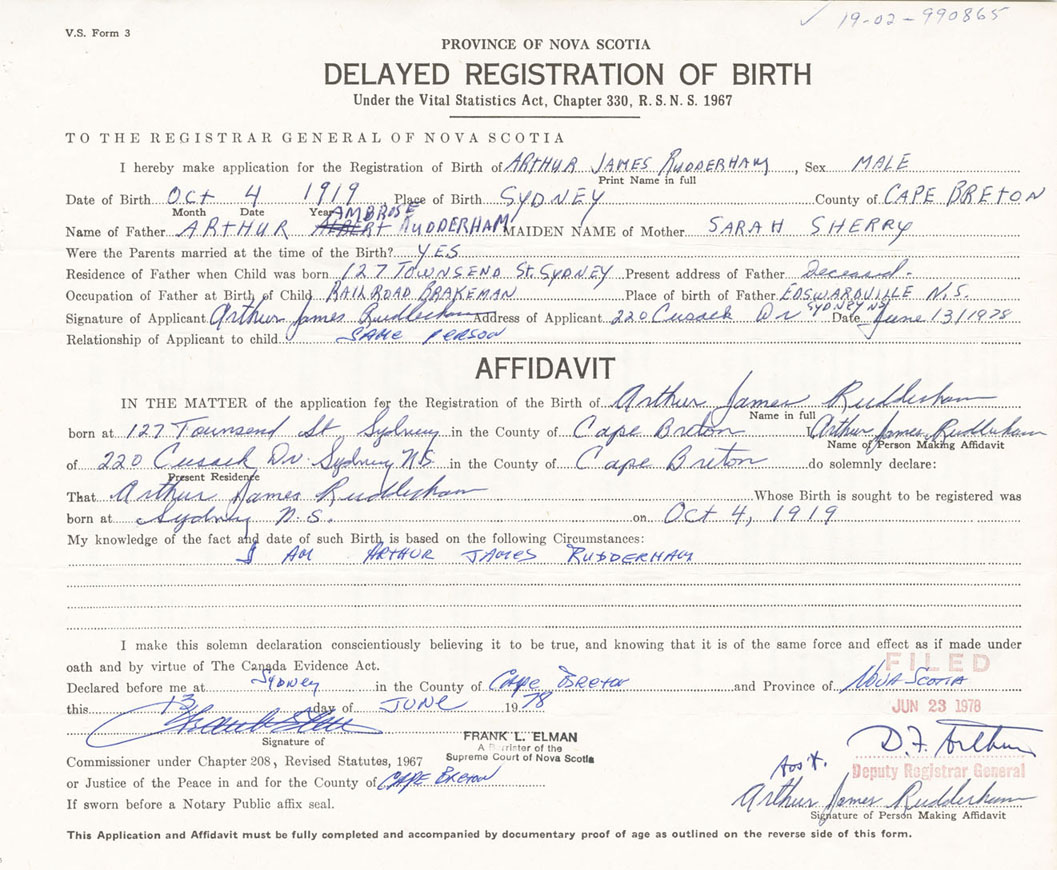 19-02-990865
V.S. Form 3
PROVINCE OF NOVA SCOTIA
DELAYED REGISTRATION OF BIRTH
Under the Vital Statistics Act, Chapter 330, R.S.N.S. 1967
TO THE REGISTRAR GENERAL OF NOVA SCOTIA
I hereby make application for the Registration of Birth of ARTHUR JAMES RUDDERHAM, Sex MALE
Print Name in full
Date of Birth OCT 4 1919 Place of Birth SYDNEY County of CAPE BRETON
Month Date Year
AMBROSE
Name of Father ARTHUR ALBERT RUDDERHAM MAIDEN NAME of Mother SARAH SHERRY
Were the Parents married at the time of the Birth? YES
Residence of Father when Child was born 127 TOWNSEND St. SYDNEY Present address of Father Deceased.
Occupation of Father at Birth of Child RAILROAD BRAKEMAN Place of birth of Father EDSWARDVILLE N.S.
Signature of Applicant Arthur James Rudderham Address of Applicant 220 Cusack Dr SYDNEY NS Date June 13/1978
Relationship of Applicant to child SAME PERSON
AFFIDAVIT
IN THE MATTER of the application for the Registration of the Birth of Arthur James Rudderham
Name in full
born at 127 Townsend St Sydney in the County of Cape Breton I Arthur James Rudderham
Name of Person Making Affidavit
of 220 Cusack Dr. Sydney NS in the County of Cape Breton do solemnly declare:
Present Residence
That Arthur James Rudderham Whose Birth is sought to be registered was
born at Sydney N.S. on Oct 4, 1919
My knowledge of the fact and date of such Birth is based on the following Circumstances:
I AM ARTHUR JAMES RUDDERHAM
I make this solemn declaration conscientiously believing it to be true, and knowing that it is of the same force and effect as if made under
oath and by virtue of The Canada Evidence Act.
FILED
Declared before me at Sydney in the County of Cape Breton and Province of NOVA SCOTIA
this 13 day of JUNE 1978
JUN 23 1978
Signature of
FRANK L. ELMAN
A Barrister of the
Supreme Court of Nova Scotia
D.F.
Commissioner under Chapter 208, Revised Statutes, 1967
Asst.
Deputy Registrar General
or Justice of the Peace in and for the County of CAPE BRETON
Arthur James Rudderham
Signature of Person Making Affidavit
If sworn before a Notary Public affix seal.
This Application and Affidavit must be fully completed and accompanied by documentary proof of age as outlined on the reverse side of this form.